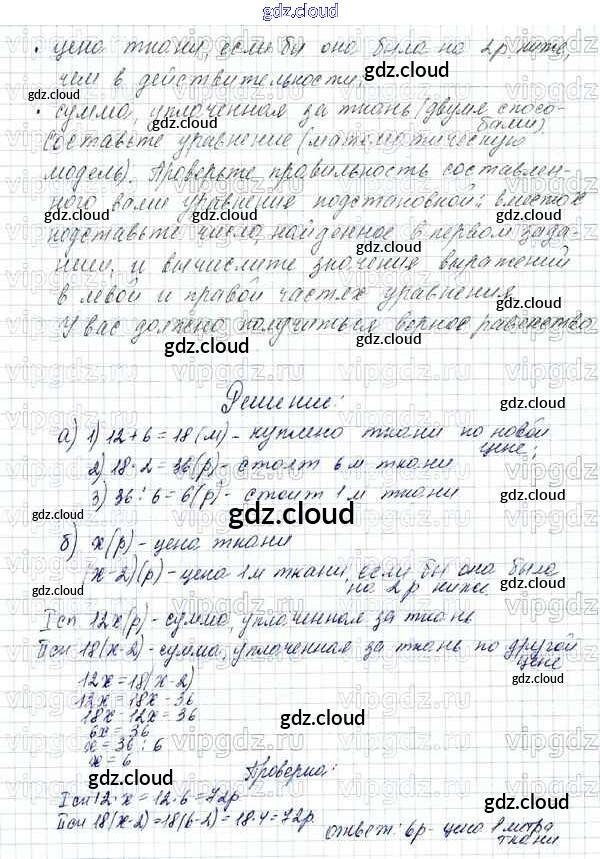 gdz.cloud
• цена ткани, если бы она была на 2р. ниже,
чем в действительности;
• сумма, уплаченная за ткань (двумя спосо-
бами)
Составьте уравнение (математическую
модель). Проверьте правильность составлен-
ного вами уравнения подстановкой: вместо x
подставьте число, найденное в первом зада-
нии, и вычислите значения выражений
в левой и правой частях уравнения.
У вас должно получиться верное равенство
Решение:
а) 1) 12+6=18(м) - куплено ткани по новой
цене;
2) 18·2=36(р) - стоят 6 м ткани
3) 36:6=6(р) - стоит 1 м ткани
б) x(р) - цена ткани
(x-2)(р) - цена 1м ткани, если бы она была
на 2р ниже
I сп 12x(р) - сумма, уплаченная за ткань
II сп 18(x-2) - сумма, уплаченная за ткань по другой
цене
12x=18(x-2)
12x=18x-36
18x-12x=36
6x=36
x=36:6
x=6
Проверка:
I сп 12·x=12·6=72р
II сп 18(x-2)=18(6-2)=18·4=72р.
ответ: 6р - цена 1 метра
ткани